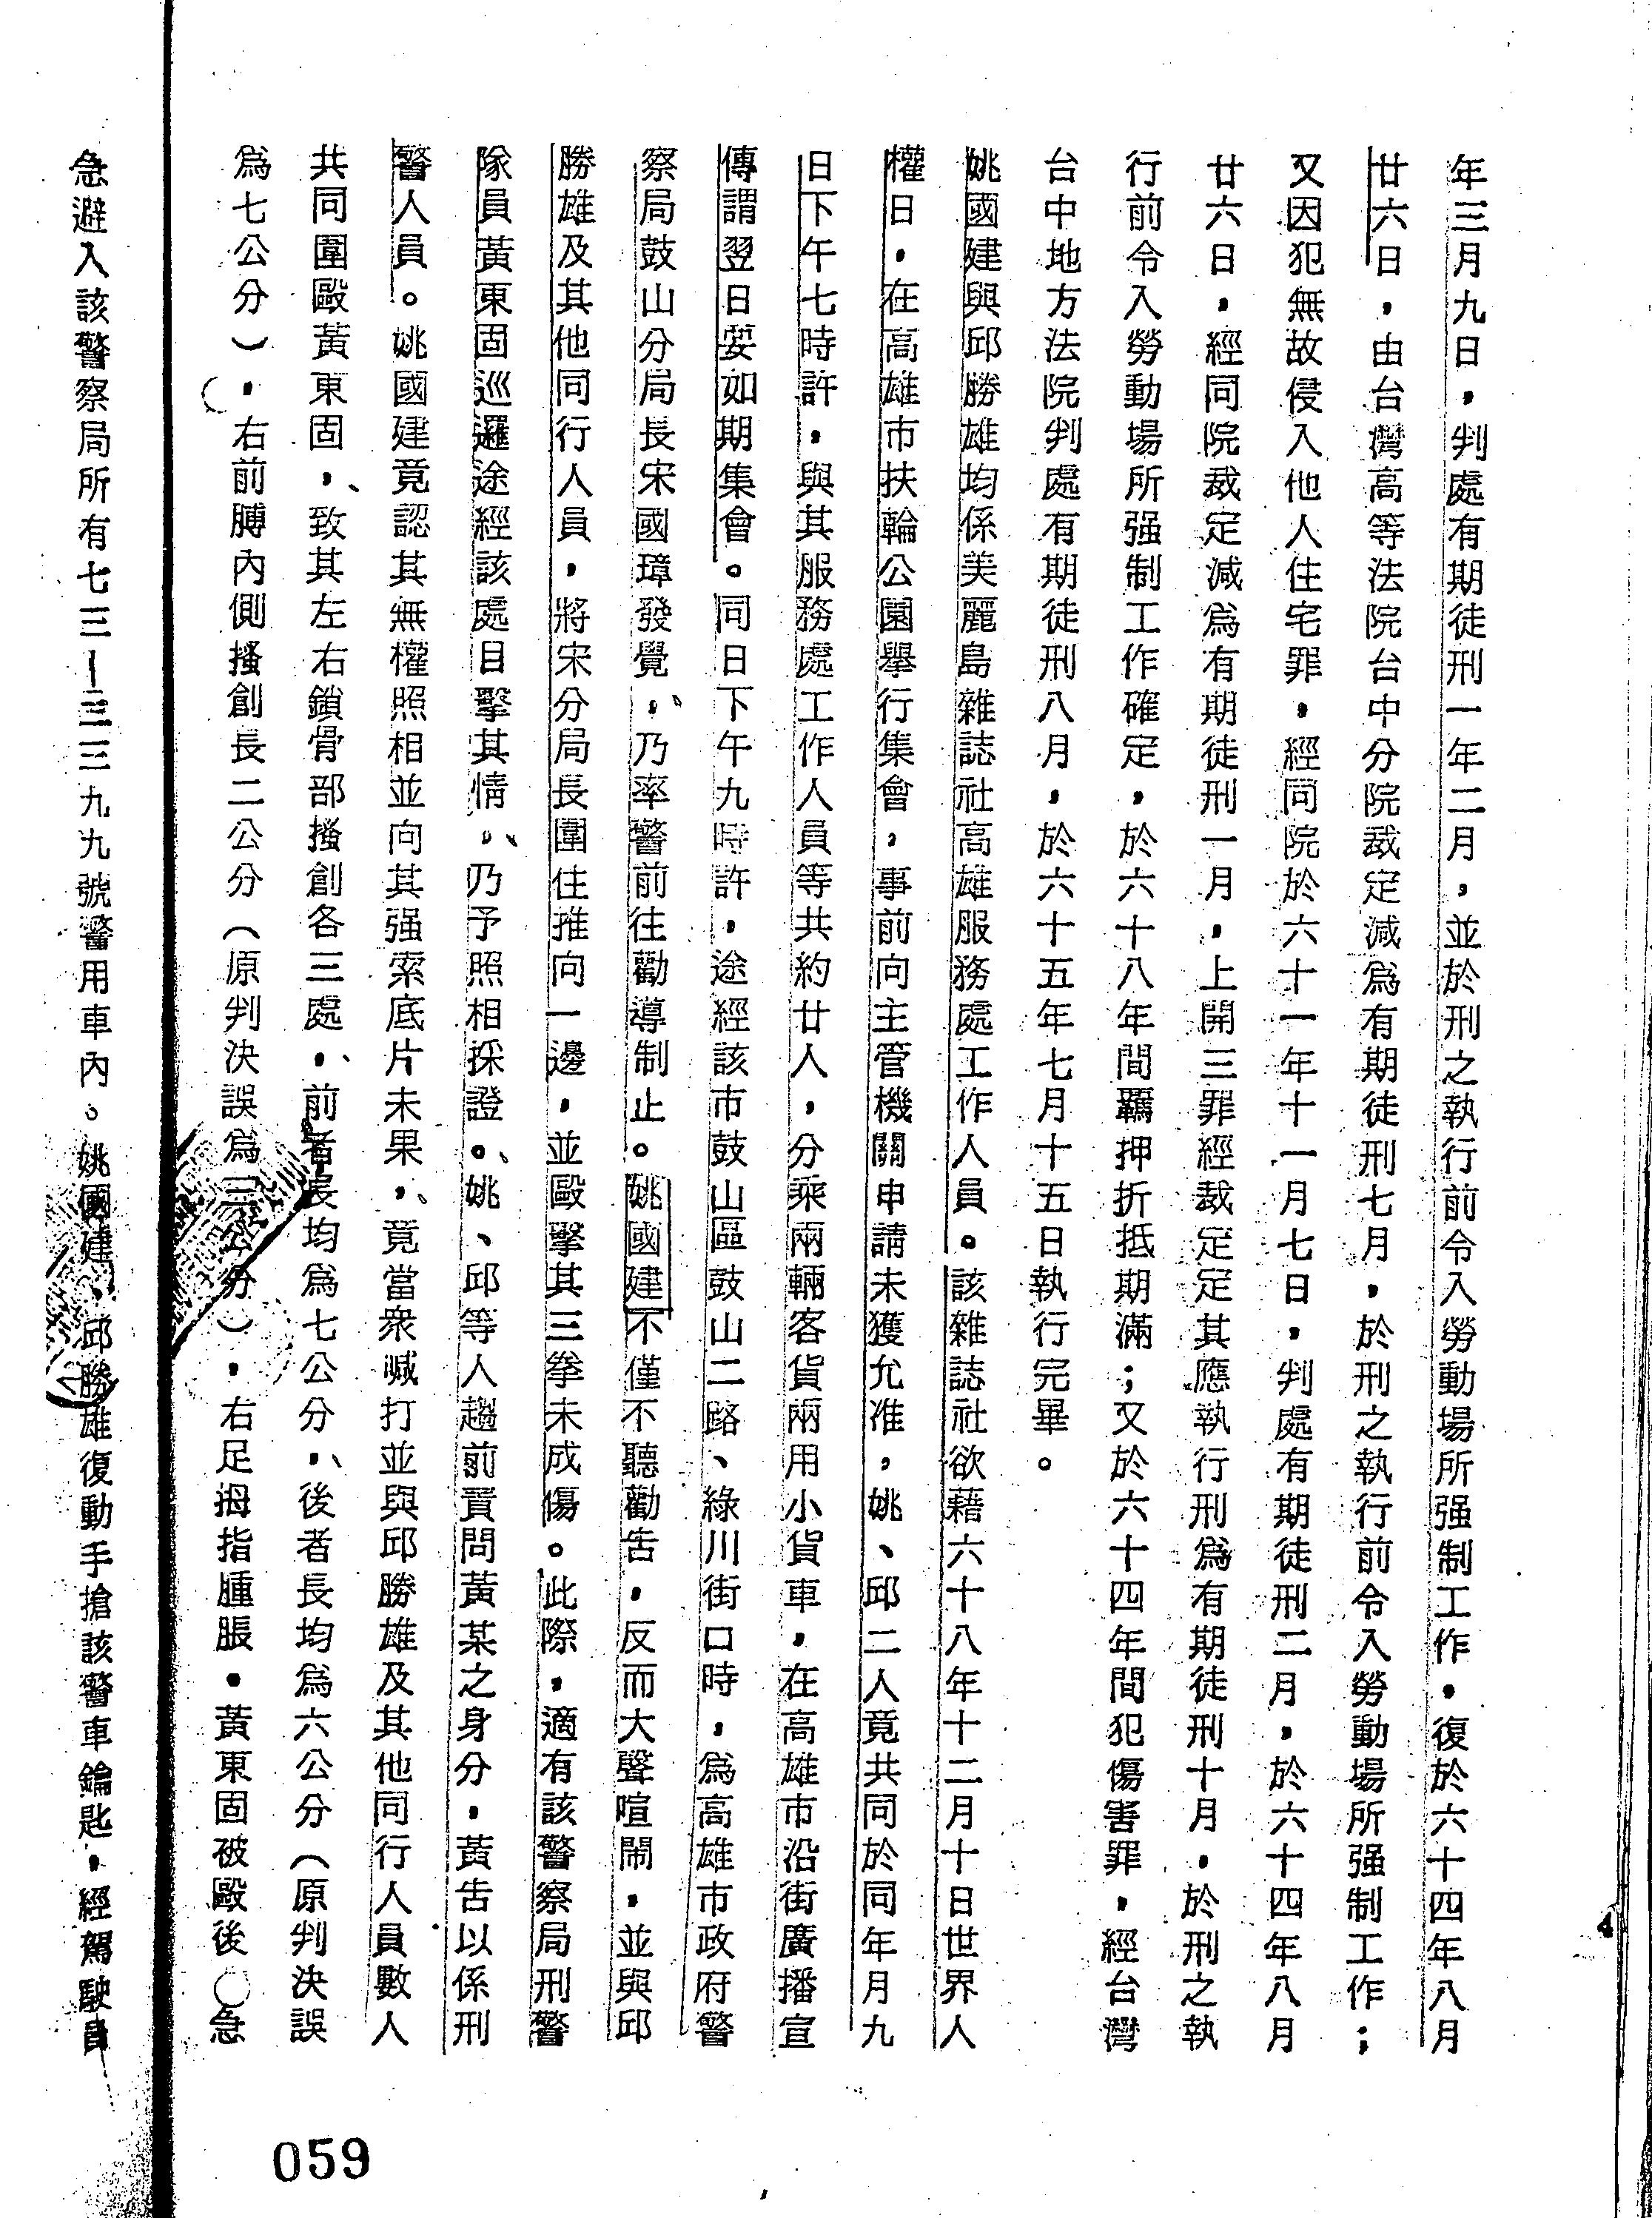 年三月九日，判處有期徒刑一年二月，並於刑之執行前令入勞動場所强制工作。復於六十四年八月
廿六日，由台灣高等法院台中分院裁定減為有期徒刑七月，於刑之執行前令入勞動場所强制工作；
又因犯無故侵入他人住宅罪，經同院於六十一年十一月七日，判處有期徒刑二月，於六十四年八月
廿六日，經同院裁定減為有期徒刑一月，上開三罪經裁定定其應執行刑為有期徒刑十月，於刑之執
行前令入勞動場所强制工作確定，於六十八年間羈押折抵期滿；又於六十四年間犯傷害罪，經台灣
台中地方法院判處有期徒刑八月，於六十五年七月十五日執行完畢。
姚國建與邱勝雄均係美麗島雜誌社高雄服務處工作人員。該雜誌社欲藉六十八年十二月十日世界人
權日，在高雄市扶輪公園舉行集會，事前向主管機關申請未獲允准，姚、邱二人竟共同於同年月九
日下午七時許，與其服務處工作人員等共約廿人，分乘兩輛客貨兩用小貨車，在高雄市沿街廣播宣
傳謂翌日要如期集會。同日下午九時許，途經該市鼓山區鼓山二路、綠川街口時，為高雄市政府警
察局鼓山分局長宋國璋發覺，乃率警前往勸導制止。姚國建不僅不聽勸告，反而大聲喧鬧，並與邱
勝雄及其他同行人員，將宋分局長圍住推向一邊，並毆擊其三拳未成傷。此際，適有該警察局刑警
隊員黃東固巡邏途經該處目擊其情，乃予照相採證。姚、邱等人趨前質問黃某之身分，黃告以係刑
警人員。姚國建竟認其無權照相並向其强索底片未果，竟當衆喊打並與邱勝雄及其他同行人員數人
共同圍毆黃東固，致其左右鎖骨部搔創各三處，前者長均為七公分，後者長均為六公分（原判決誤
為七公分），右前膊內側搔創長二公分（原判決誤為三公分），右足拇指腫脹。黃東固被毆後急
急避入該警察局所有七三－三三九九號警用車內。姚國建、邱勝雄復動手搶該警車鑰匙，經駕駛員
059
4